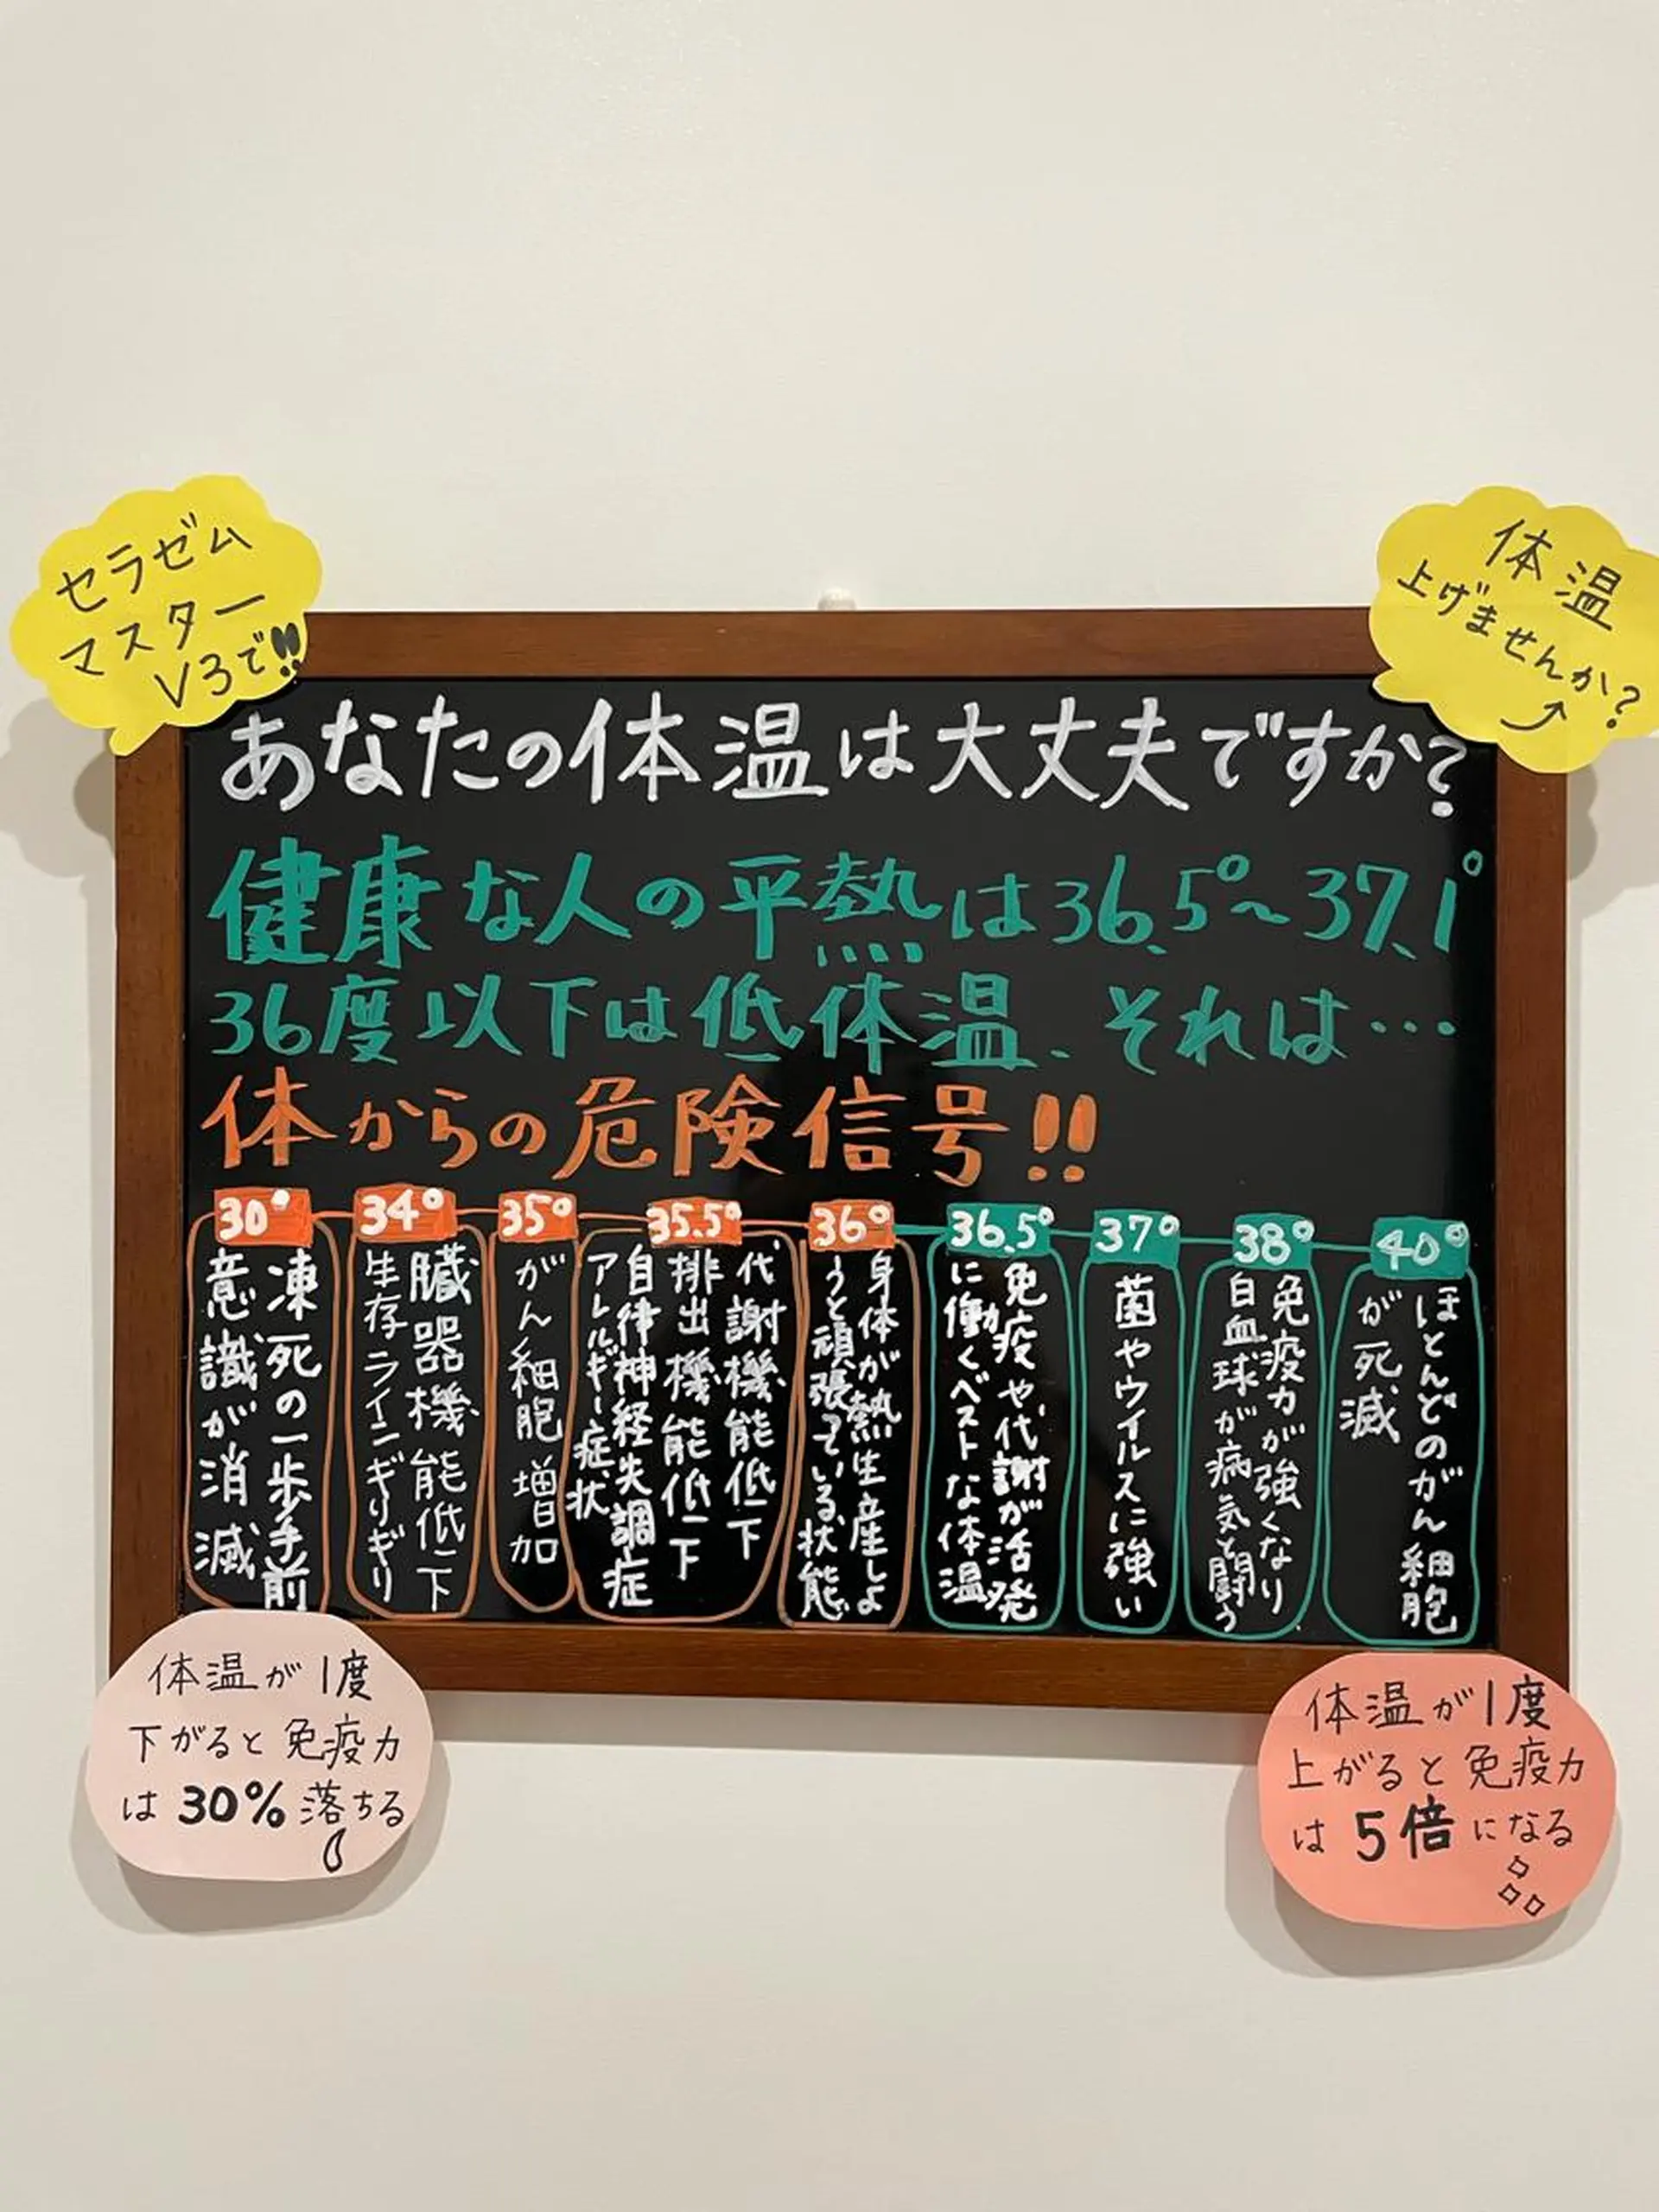 セラゼム
マスター
V3で!!
体温
上げませんか?
あなたの体温は大丈夫ですか?
健康な人の平熱は36.5°~37.1°
36度以下は低体温、それは…
体からの危険信号!!
30°
凍死の一歩手前
意識が消滅
34°
臓器機能低下
生存ラインギリギリ
35°
がん細胞増加
35.5°
代謝機能低下
排出機能低下
自律神経失調症
アレルギー症状
36°
身体が熱生産しよ
うと頑張っている状態
36.5°
免疫や代謝が活発
に働くベストな体温
37°
菌やウイルスに強い
38°
免疫力が強くなり
白血球が病気と闘う
40°
ほとんどのがん細胞
が死滅
体温が1度
下がると免疫力
は30%落ちる
体温が1度
上がると免疫力
は5倍になる